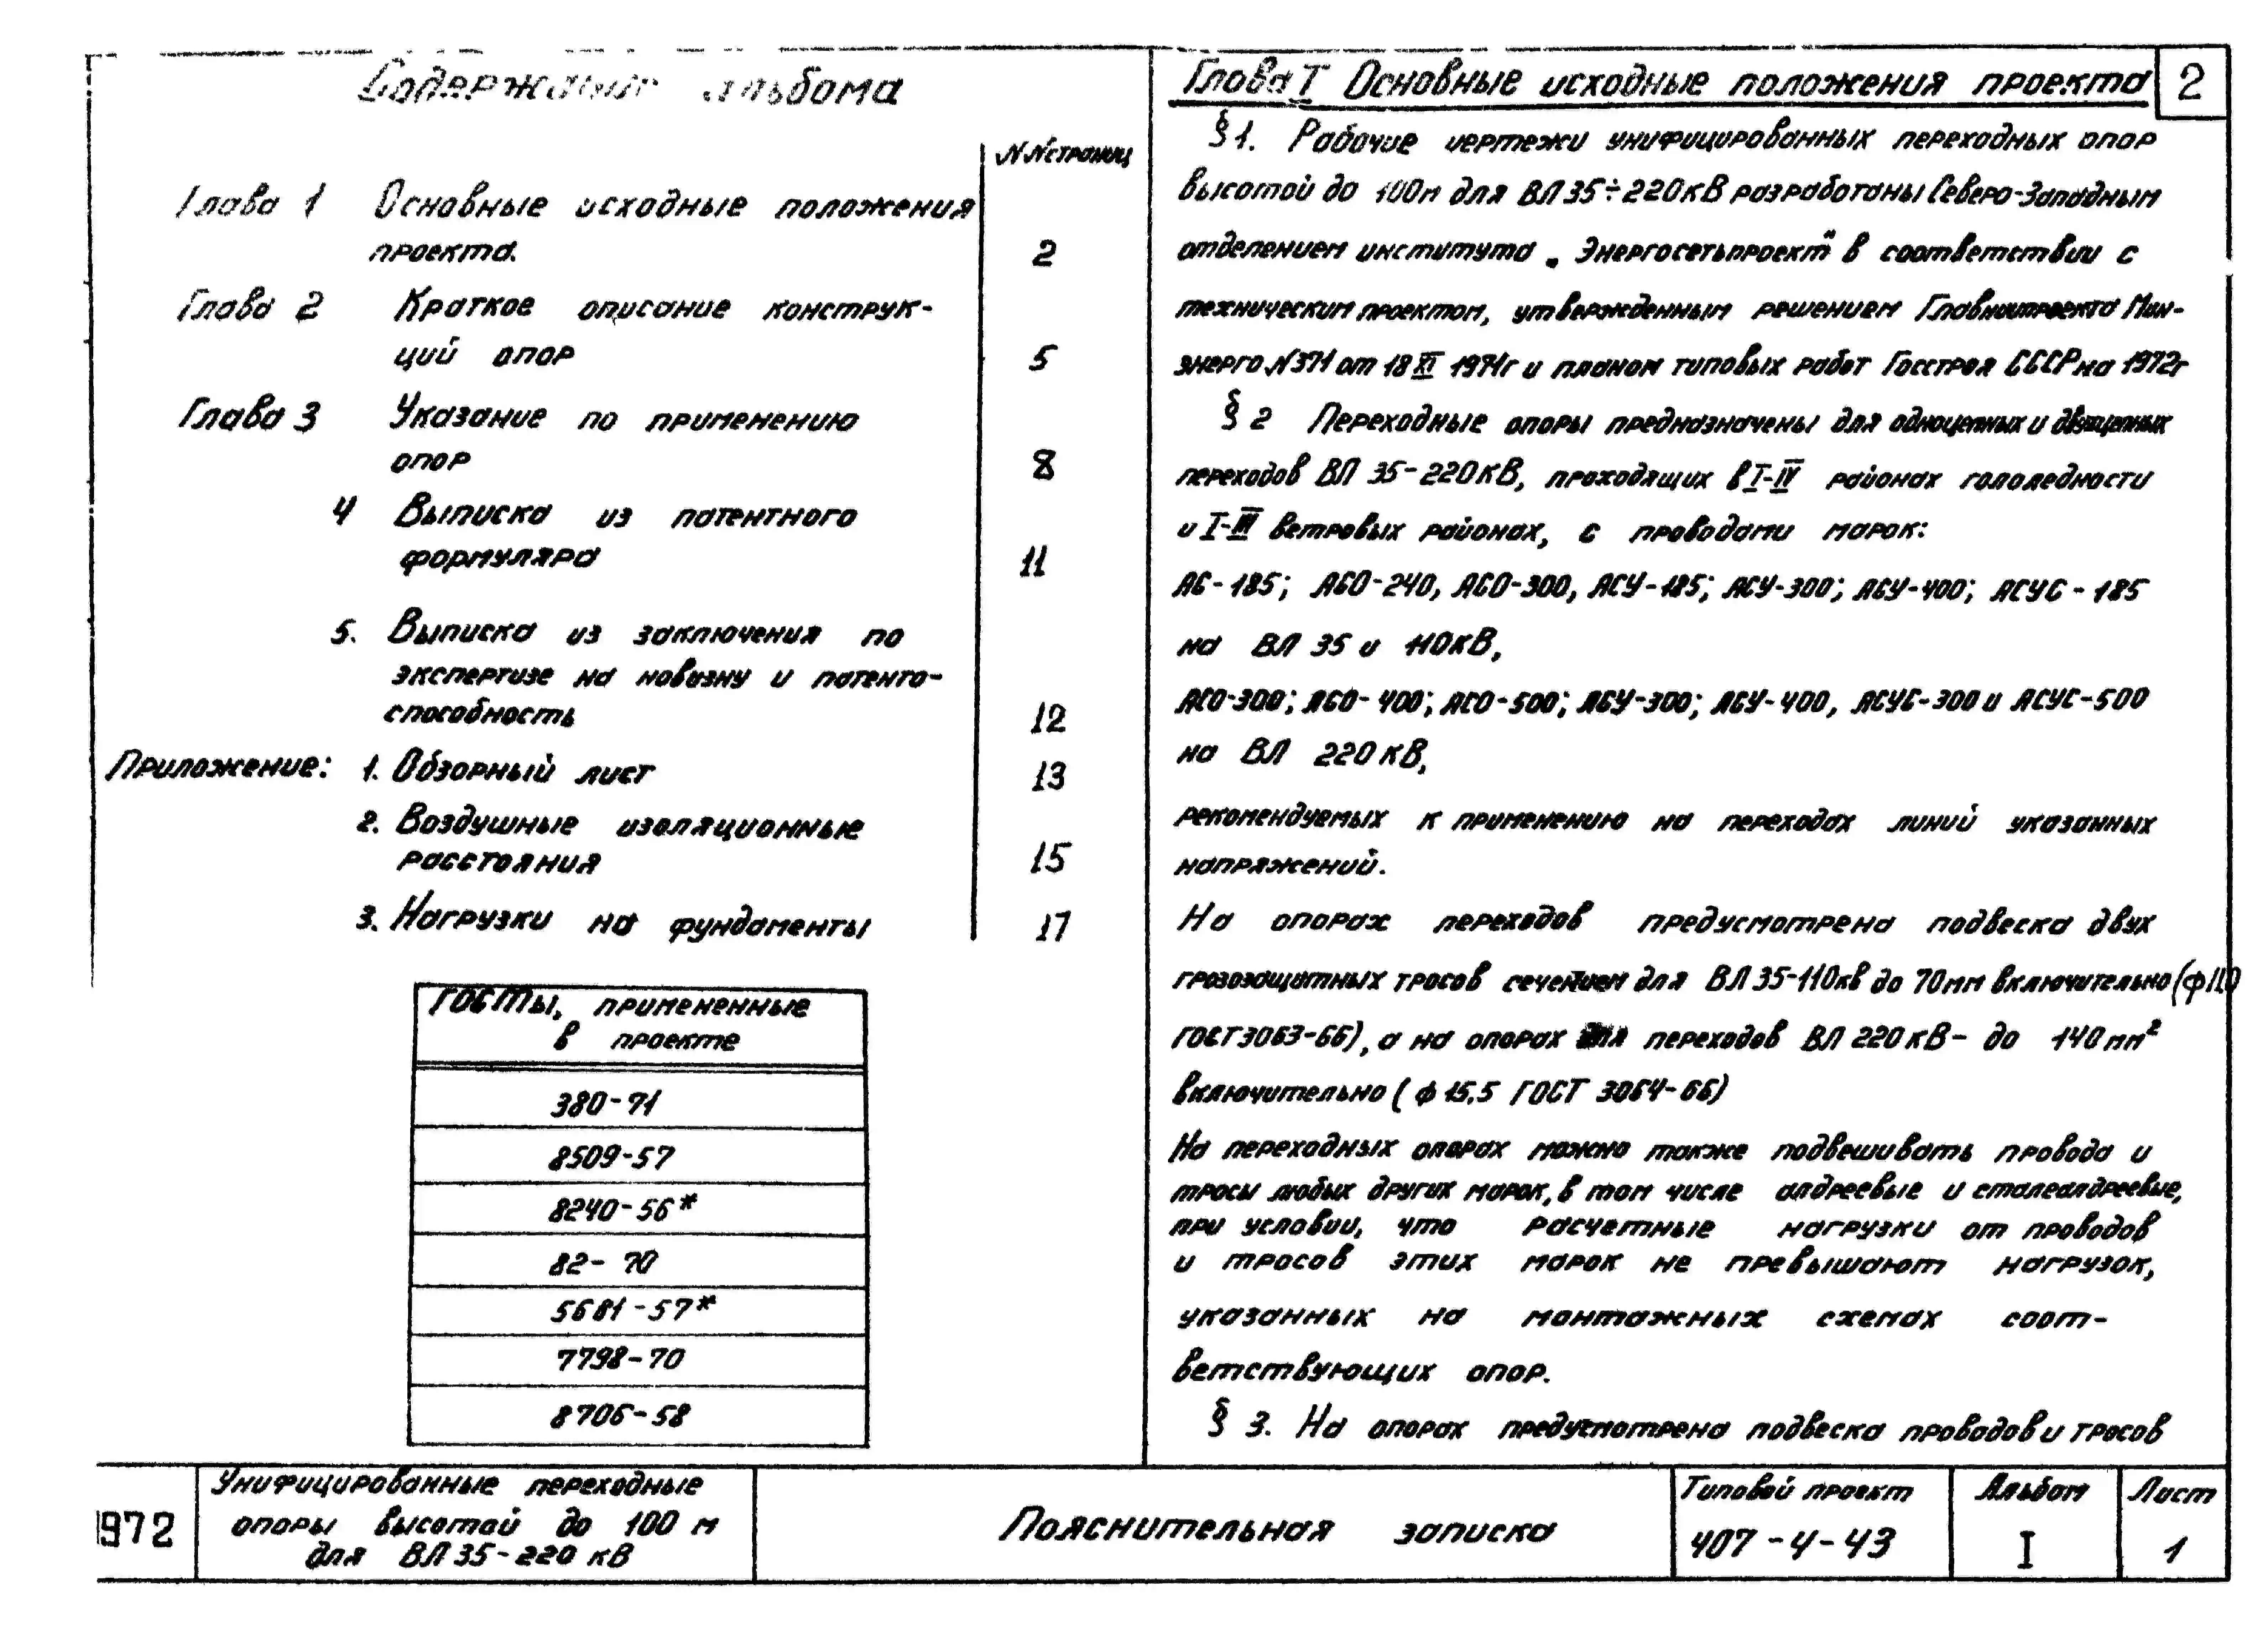 Содержание альбома
NN страниц
Глава 1 Основные исходные положения
проекта. 2
Глава 2 Краткое описание конструк-
ций опор 5
Глава 3 Указание по применению
опор 8
4 Выписка из патентного
формуляра 11
5. Выписка из заключения по
экспертизе на новизну и патенто-
способность 12
Приложение: 1. Обзорный лист 13
2. Воздушные изоляционные
расстояния 15
3. Нагрузки на фундаменты 17
ГОСТы, примененные
в проекте
380-71
8509-57
8240-56*
82-70
5681-57*
7798-70
8706-58
Глава I Основные исходные положения проекта
2
§1. Рабочие чертежи унифицированных переходных опор
высотой до 100м для ВЛ 35÷220кВ разработаны Северо-Западным
отделением института „Энергосетьпроект" в соответствии с
техническим проектом, утвержденным решением Главниипроекта Мин-
энерго N371 от 18 XI 1971г и планом типовых работ Госстроя СССР на 1972г
§ 2 Переходные опоры предназначены для одноцепных и двухцепных
переходов ВЛ 35-220кВ, проходящих в I-IV районах гололедности
и I-III ветровых районах, с проводами марок:
АС-185; АСО-240, АСО-300, АСУ-185; АСУ-300; АСУ-400; АСУС-185
на ВЛ 35 и 110кВ,
АСО-300; АСО-400; АСО-500; АСУ-300; АСУ-400, АСУС-300 и АСУС-500
на ВЛ 220кВ,
рекомендуемых к применению на переходах линий указанных
напряжений.
На опорах переходов предусмотрена подвеска двух
грозозащитных тросов сечением для ВЛ 35-110кв до 70мм включительно (ф11,0
ГОСТ3063-66), а на опорах для переходов ВЛ 220кВ- до 140мм²
включительно (ф 15,5 ГОСТ 3064-66)
На переходных опорах можно также подвешивать провода и
тросы любых других марок, в том числе алдреевые и сталеалдреевые,
при условии, что расчетные нагрузки от проводов
и тросов этих марок не превышают нагрузок,
указанных на монтажных схемах соот-
ветствующих опор.
§ 3. На опорах предусмотрена подвеска проводов и тросов
1972
Унифицированные переходные
опоры высотой до 100 м
для ВЛ 35-220 кВ
Пояснительная записка
Типовой проект
407-4-43
Альбом
I
Лист
1